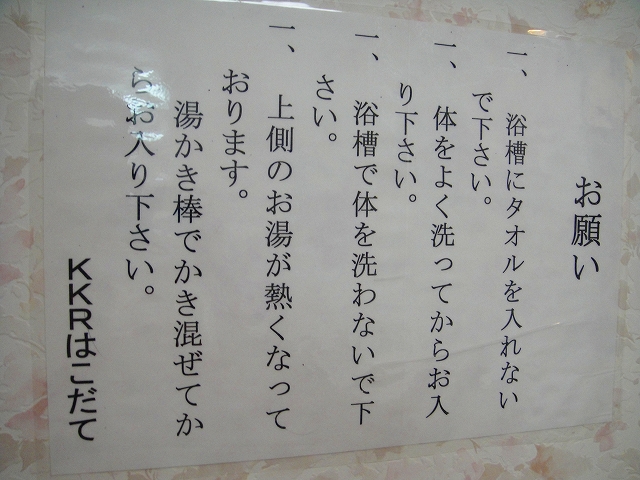 お願い
一、 浴槽にタオルを入れない
で下さい。
一、 体をよく洗ってからお入
り下さい。
一、 浴槽で体を洗わないで下
さい。
一、 上側のお湯が熱くなって
おります。
湯かき棒でかき混ぜてか
らお入り下さい。
KKRはこだて